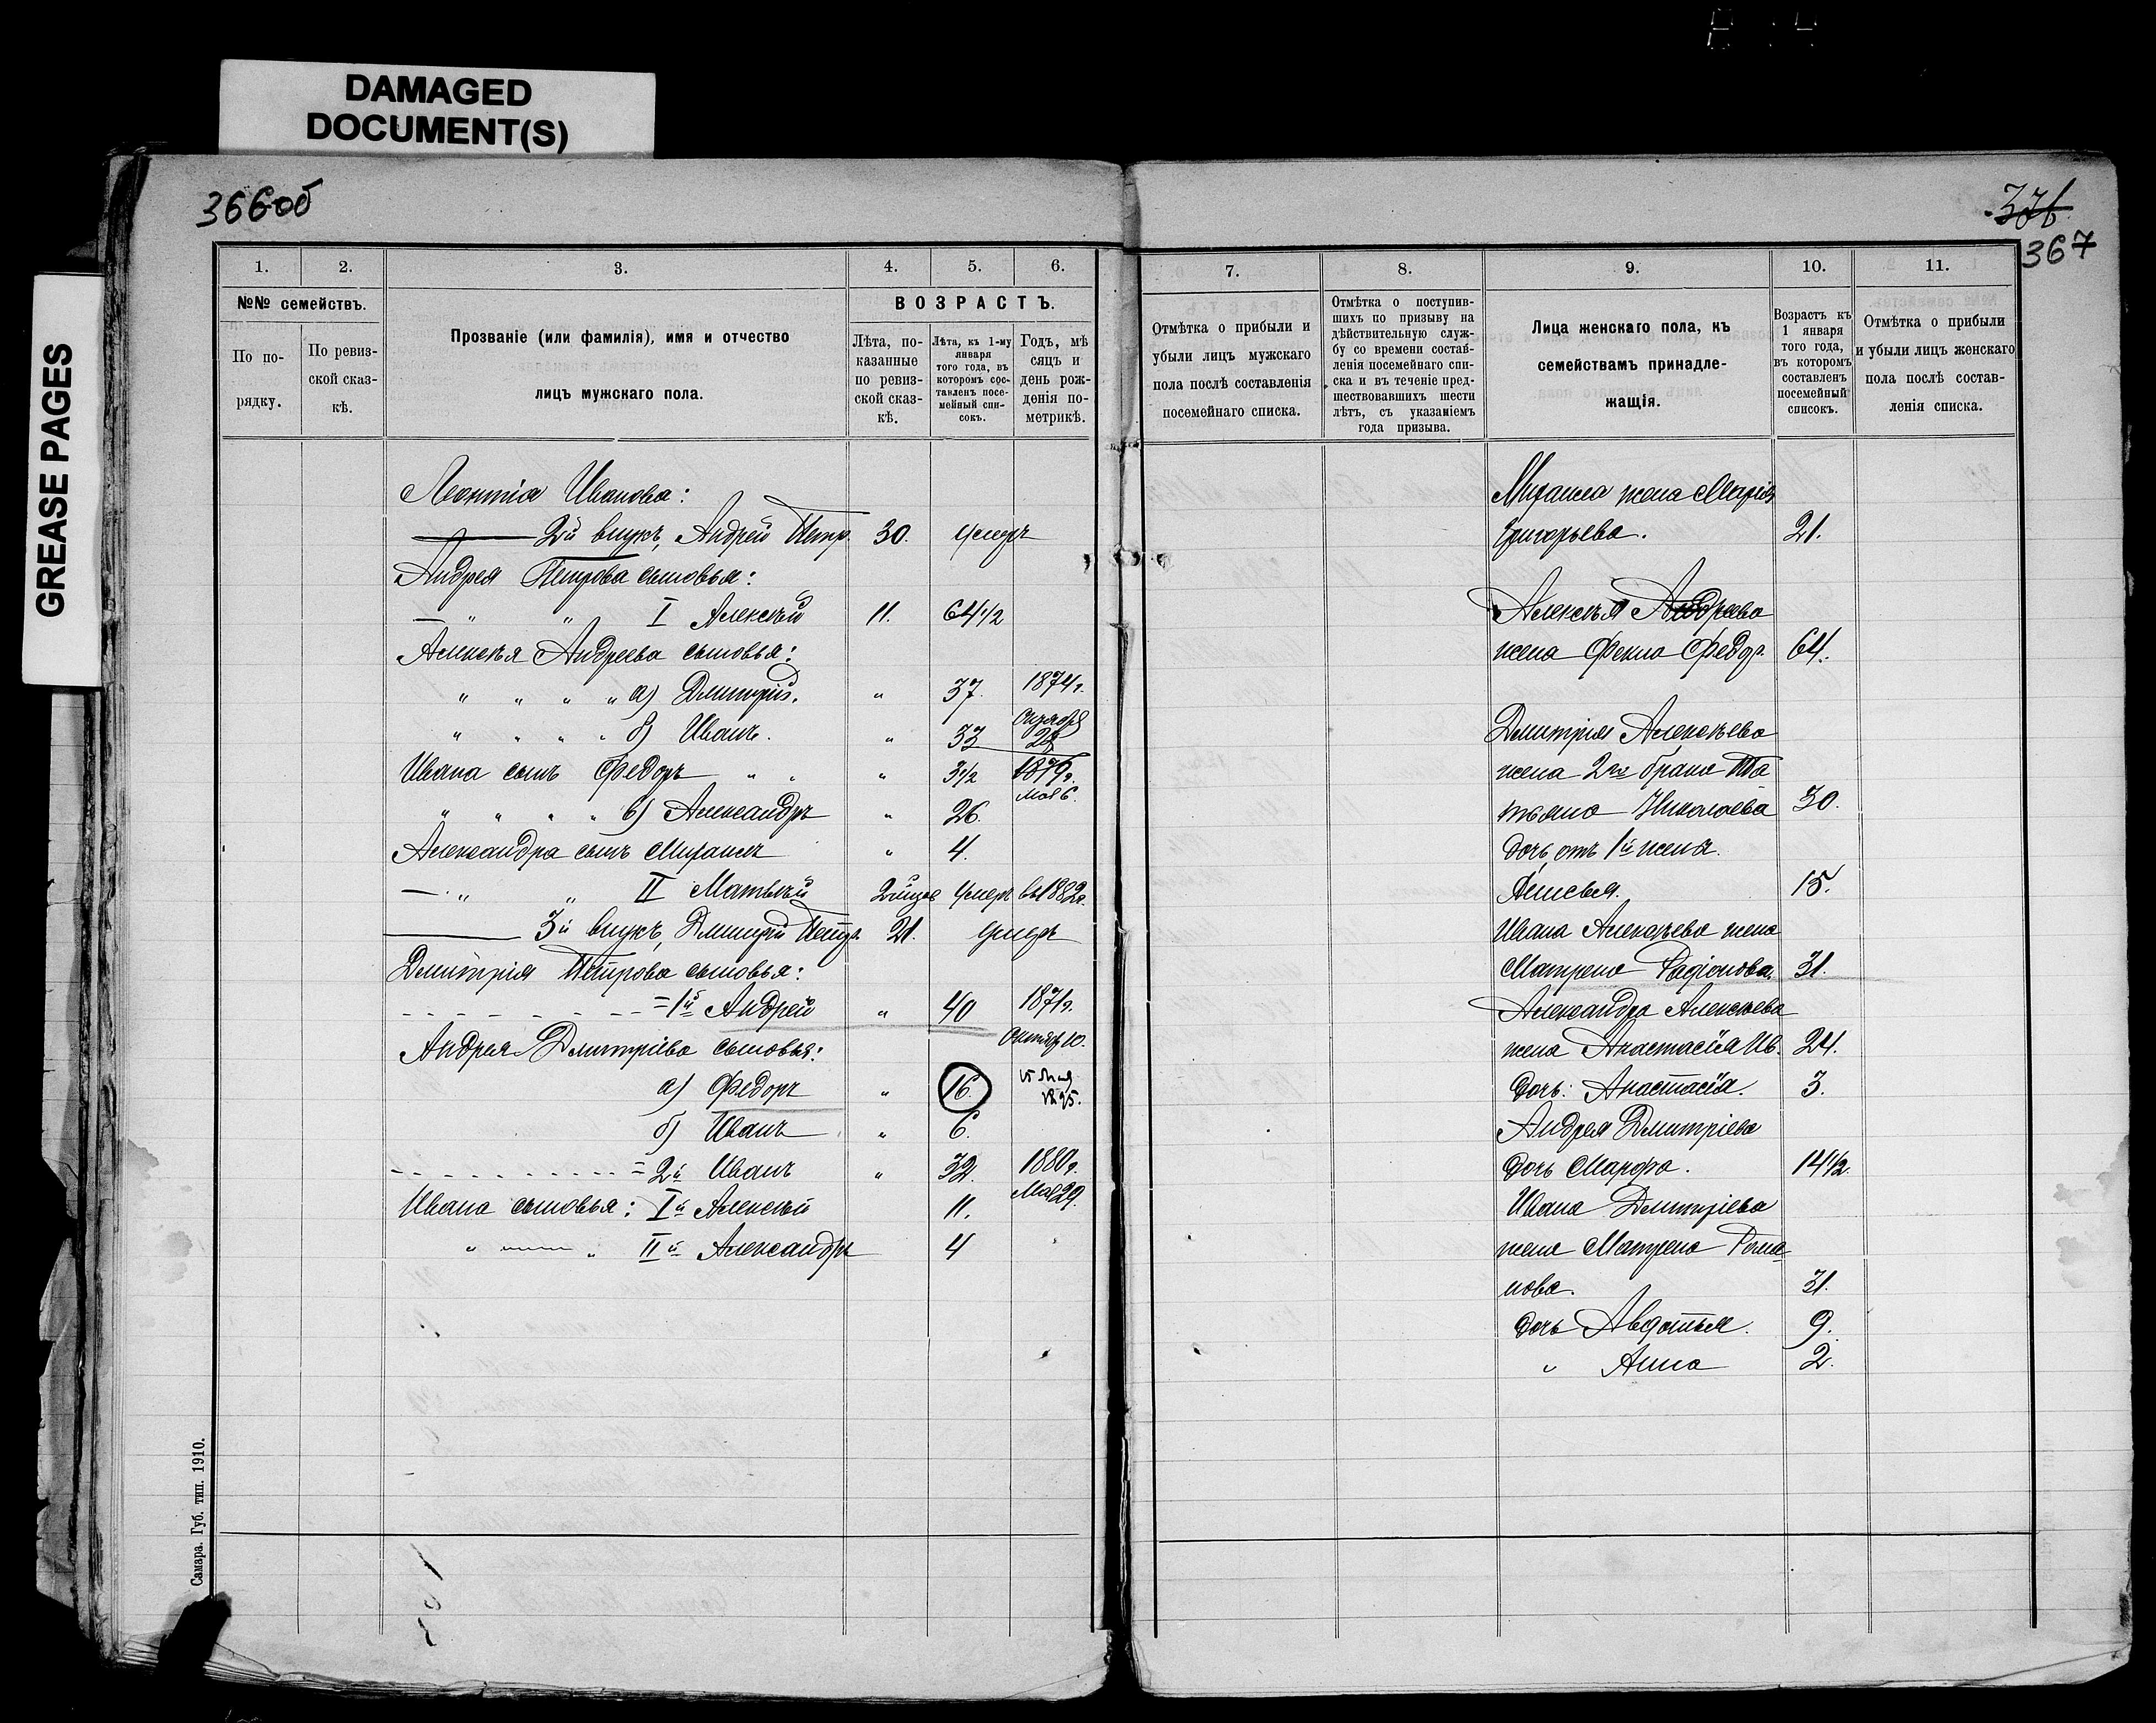 DAMAGED
DOCUMENT(S)
GREASE PAGES
366об
376
367
1.
2.
3.
4.
5.
6.
№№ семействъ.
По по-
рядку.
По ревиз-
ской сказ-
кѣ.
Прозваніе (или фамилія), имя и отчество
лицъ мужскаго пола.
ВОЗРАСТЪ.
Лѣта, по-
казанные
по ревиз-
ской сказ-
кѣ.
Лѣта, къ 1-му
января
того года, въ
которомъ сос-
тавленъ посе-
мейный спи-
сокъ.
Годъ, мѣ
сяцъ и
день рож-
денія по-
метрикѣ.
Леонтія Иванова:
2й внукъ, Андрей Петр. 30. умеръ
Андрея Петрова сыновья:
" " I Алексѣй 11. 64 1/2
Алексѣя Андреева сыновья:
" " " " а) Дмитрій. " 37. 1874г.
Октября
" " " " б) Иванъ. " 33
Ивана сынъ Федоръ " " " 3 1/2 1879г.
Мая 6.
" " " " в) Александръ " 26.
Александра сынъ Михаилъ " 4.
" " II Матвѣй умеръ въ 1882г.
3й внукъ, Дмитрій Петр. 21. умеръ
Дмитрія Петрова сыновья:
=1й Андрей " 40 1871г.
Октябр 10.
Андрея Дмитріева сыновья:
а) Федоръ " 16. 15 Мая
1895.
б) Иванъ " 6.
=2й Иванъ " 32. 1880г.
Мая 29.
Ивана сыновья: Iй Алексѣй 11.
" " IIй Александръ 4
Самара. Губ. тип. 1910.
7.
8.
9.
10.
11.
Отмѣтка о прибыли и
убыли лицъ мужскаго
пола послѣ составленія
посемейнаго списка.
Отмѣтка о поступив-
шихъ по призыву на
дѣйствительную служ-
бу со времени состав-
ленія посемейнаго спи-
ска и въ теченіе пред-
шествовавшихъ шести
лѣтъ, съ указаніемъ
года призыва.
Лица женскаго пола, къ
семействамъ принадле-
жащія.
Возрастъ къ
1 января
того года,
въ которомъ
составленъ
посемейный
списокъ.
Отмѣтка о прибыли
и убыли лицъ женскаго
пола послѣ состав-
ленія списка.
Михаила жена Марія
Григорьева. 21.
Алексѣя Андреева
жена Фекла Федор. 64.
Дмитрія Алексѣева
жена 2го брака Та
тьяна Николаева 30.
дочь отъ 1й жены.
15.
Ивана Алексѣева жена
Матрена Радіонова. 31.
Александра Алексѣева
жена Анастасія Ив. 24.
дочь: Анастасія. 3.
Андрея Дмитріева
дочь Марфа. 14 1/2.
Ивана Дмитріева
жена Матрена Рома-
нова. 31.
дочь Авдотья. 9.
" Анна 2.